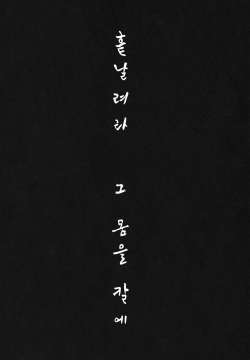 흩날려라
그 몸을 칼에